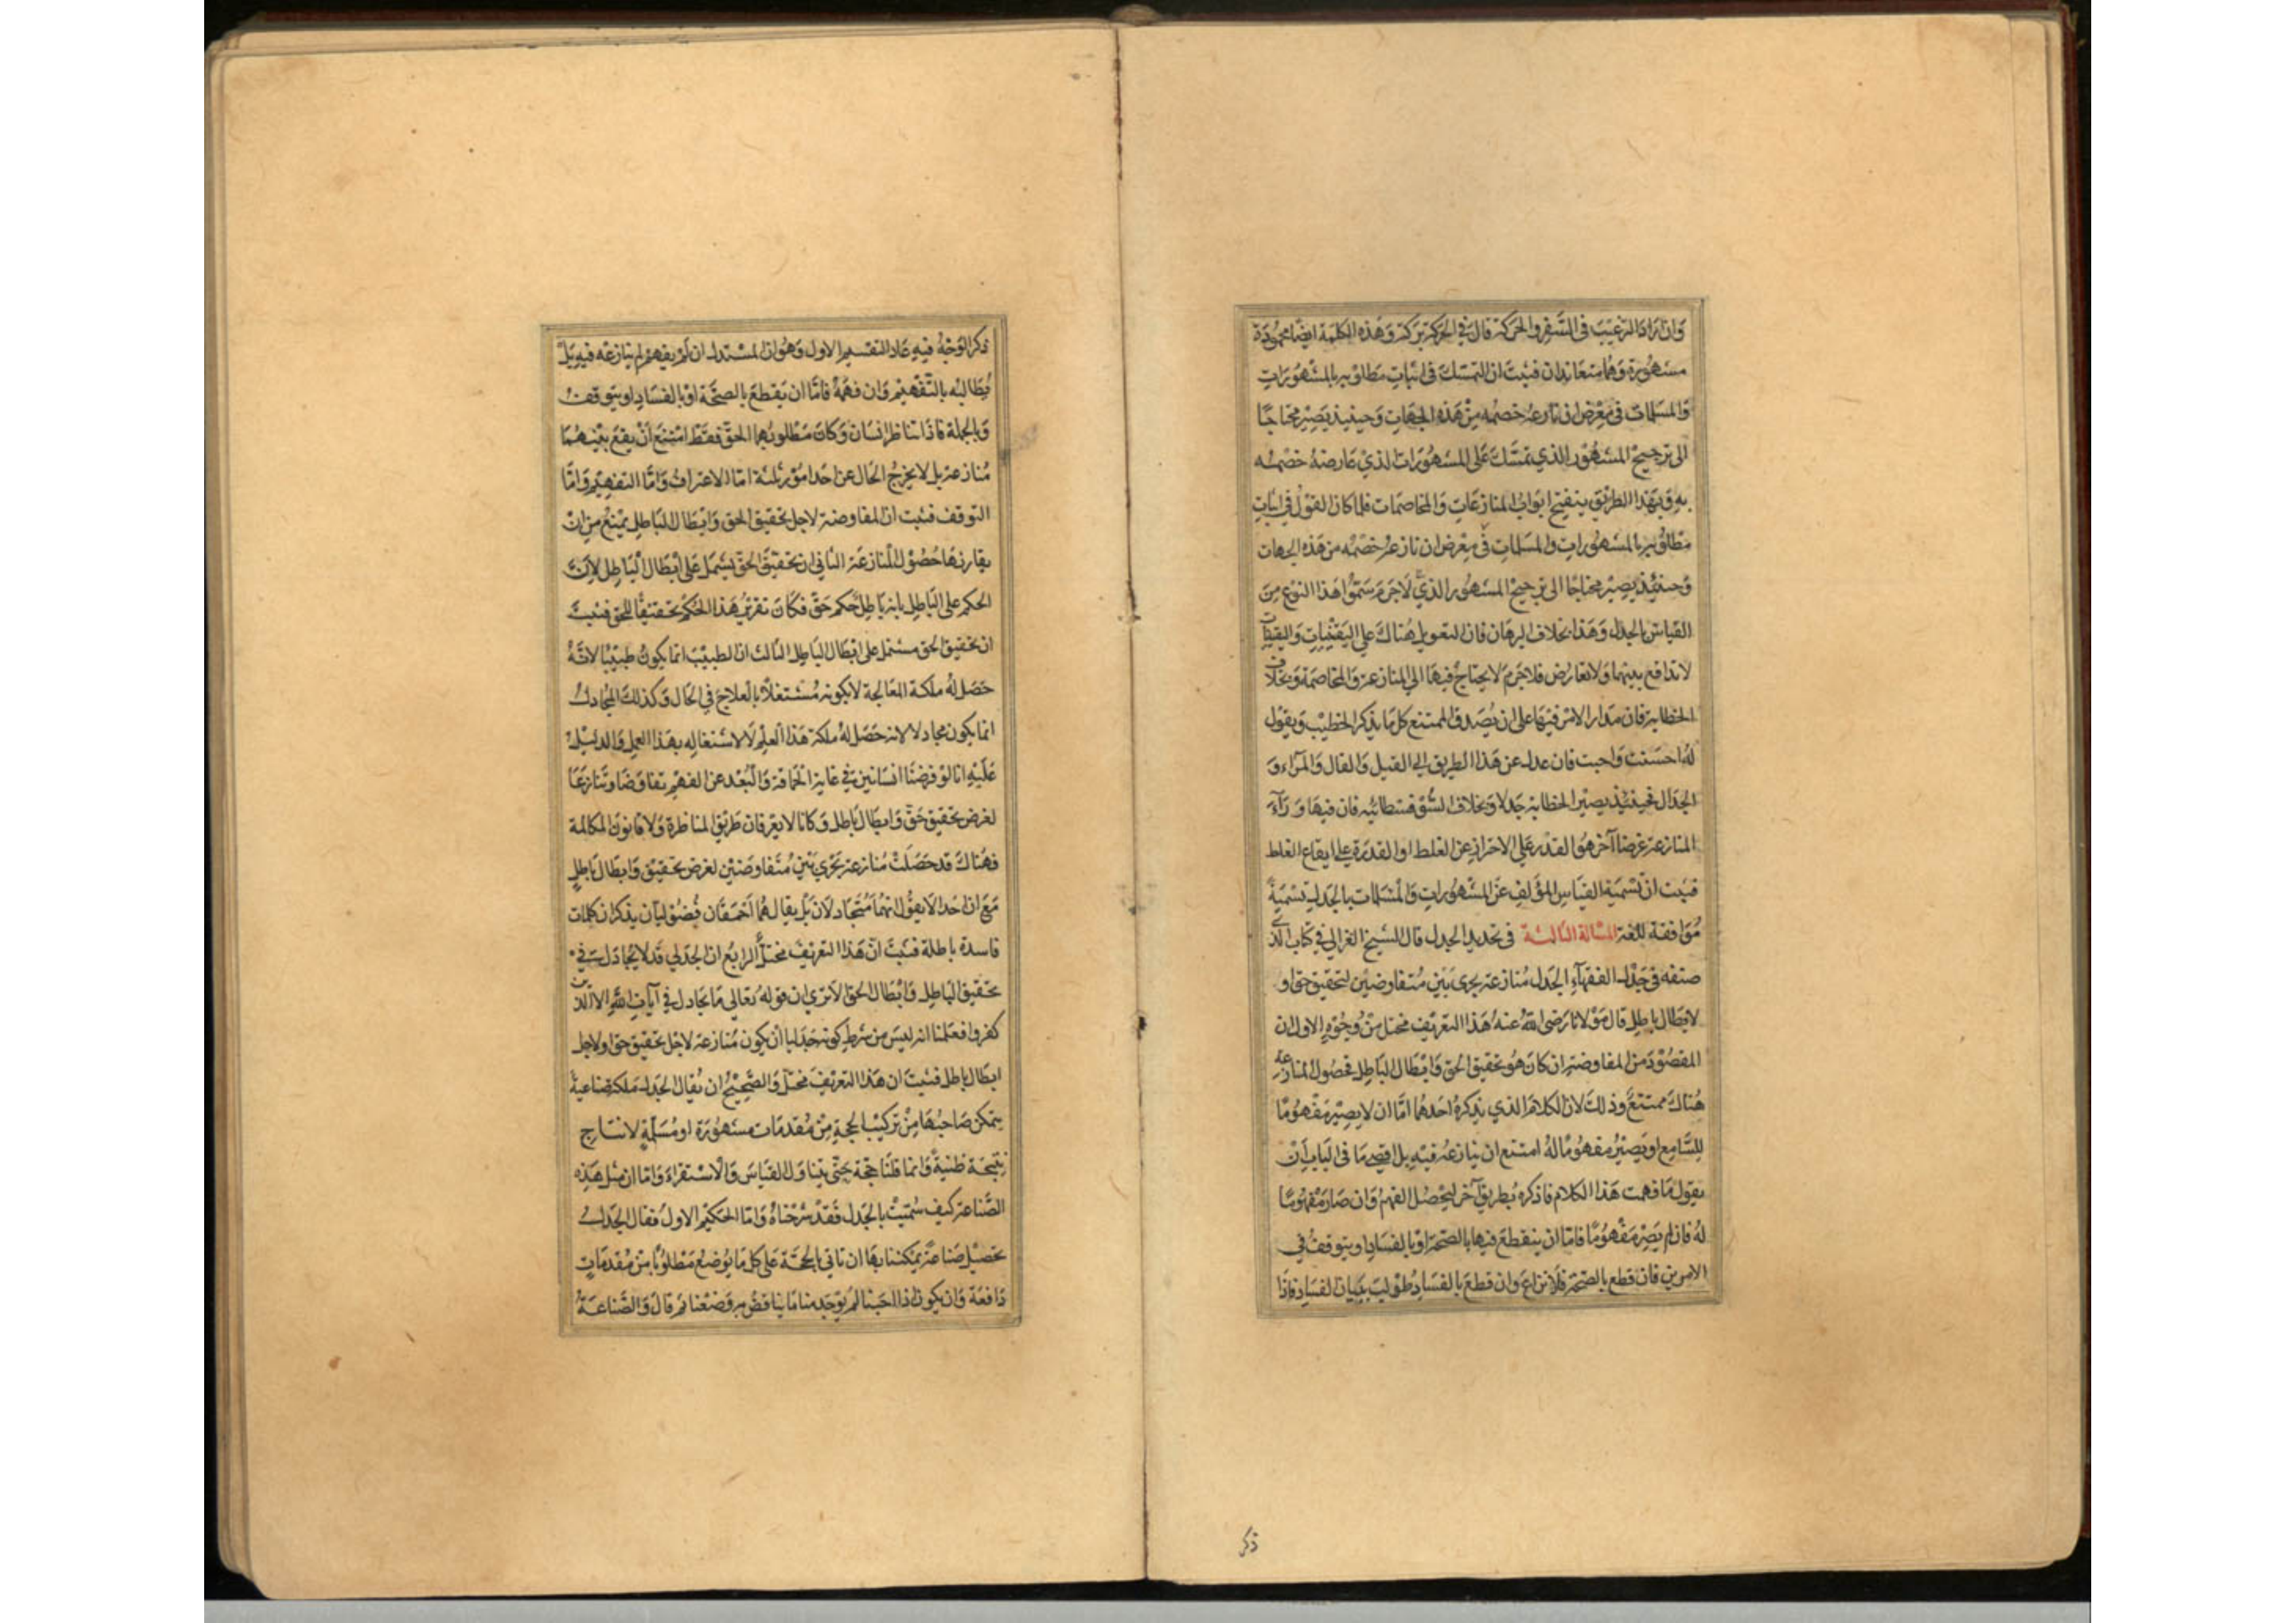 وان اراد الترغيب في السفر والحركة قال في الحركة بركة وهذه الكلمة ايضا محمودة
مشهورة وهما متعاندان فثبت ان التمسك في اثبات مطلوبه بالمشهورات
والمسلمات في معرض ان نازعه خصمه من هذه الجهات وحينئذ يصير محتاجا
الى ترجيح المشهور الذي تمسك على المشهورات الذي عارضه خصمه
به وبهذا الطريق ينفتح ابواب المنازعات والمخاصمات فلما كان القول في اثبات
مطلوبه بالمشهورات والمسلمات في معرض ان نازعه خصمه من هذه الجهات
وحينئذ يصير محتاجا الى ترجيح المشهور الذي لاجرم سموا هذا النوع من
القياس بالجدل وهذا بخلاف البرهان فان التعويل هناك على اليقينيات واليقينيات
لا تدافع بينهما ولا تعارض فلاجرم لا يحتاج فيها الى المنازعة والمخاصمة وبخلاف
الخطابة فان مدار الامر فيها على ان يصدق الممتنع كل ما يذكر الخطيب ويقول
له احسنت واجبت فان عدل عن هذا الطريق الى القيل والقال والمراء و
الجدال فحينئذ يصير الخطابة جدلا وبخلاف السوفسطائيه فان فيها وراء
المنازعة غرضا آخر هو القدر على الاحتراز عن الغلط او القدرة على ايقاع الغلط
فثبت ان تسمية القياس المؤلف عن المشهورات والمسلمات بالجدل تسمية
موافقة للغة المسالة الثالثة في تحديد الجدل قال الشيخ الغزالي في كتاب الذي
صنفه في جدل الفقهاء الجدل منازعة يجرى بين متفاوضين لتحقيق حق او
لابطال باطل قال مولانا رضى الله عنه هذا التعريف مختل من وجوه الاول ان
المقصود من المفاوضة ان كان هو تحقيق الحق وابطال الباطل فحصول المنازعة
هناك ممتنع وذلك لان الكلام الذي يذكره احدهما اما ان لا يصير مفهوما
للسامع او يصير مفهوما له امتنع ان ينازعه فيه بل اقصى ما في الباب ان
يقول ما فهمت هذا الكلام فاذكره بطريق آخر ليحصل الفهم وان صار مفهوما
له فان لم يصر مفهوما فاما ان ينقطع فيها بالصحة او بالفساد او يتوقف في
الامرين فان قطع بالصحة فلا نزاع وان قطع بالفساد طولب ببيان الفساد فاذا
ذكر
ذكر الوجه فيه عاد التقسيم الاول وهو ان المستدل ان لم يفهم لم ينازعه فيه بل
يطالبه بالتفهيم وان فهمه فاما ان يقطع بالصحة او بالفساد او يتوقف
وبالجملة فاذا تناظر انسان وكان مطلوبهما الحق فقط امتنع ان يقع بينهما
منازعة بل لا يخرج الحال عن احد امور ثلثة اما الاعتراف واما التفهيم واما
التوقف فثبت ان المفاوضة لاجل تحقيق الحق وابطال الباطل يمنع من ان
يقارنها حصول المنازعة الثاني ان تحقيق الحق يشتمل على ابطال الباطل لان
الحكم على الباطل بانه باطل حكم حق فكان تقرير هذا الحكم تحقيقا للحق فثبت
ان تحقيق الحق مشتمل على ابطال الباطل الثالث ان الطبيب انما يكون طبيبا لانه
حصل له ملكة المعالجة لا بكونه مشتغلا بالعلاج في الحال وكذلك المجادل
انما يكون مجادلا لانه حصل له ملكة هذا العلم لا لاشتغاله بهذا العمل والدليل
عليه انا لو فرضنا انسانين في غاية الحماقة والبعد عن الفهم تفاوضا وتنازعا
لغرض تحقيق حق وابطال باطل وكانا لا يعرفان طريق المناظرة ولا قانون المكالمة
فهناك قد حصلت منازعة تجري بين متفاوضين لغرض تحقيق وابطال باطل
مع ان احدا لا يقول انهما متجادلان بل يقال هما احمقان فضوليان يذكران كلمات
فاسدة باطلة فثبت ان هذا التعريف مختل الرابع ان الجدلي قد لا يجادل في
تحقيق الباطل وابطال الحق الا ترى ان قوله تعالى ما يجادل في آيات الله الا الذين
كفروا فعلمنا انه ليس من شرط كونه جدليا ان يكون منازعة لاجل تحقيق حق او لاجل
ابطال باطل فثبت ان هذا التعريف مختل والصحيح ان يقال الجدل ملكة صناعية
يتمكن صاحبها من تركيب الحجة من مقدمات مشهورة او مسلمة لانتاج
نتيجة ظنية وانما قلنا حجة حتى يتناول القياس والاستقراء واما ان مثل هذه
الصناعة كيف سميت بالجدل فقد شرحناه واما الحكيم الاول فقال الجدل
تحصيل صناعة يمكننا بها ان ناتي بالحجة على كل ما يوضع مطلوبا من مقدمات
دافعة وان يكون اذا اجبنا لم يوجد منا ما يناقض به وضعنا ثم قال والصناعة